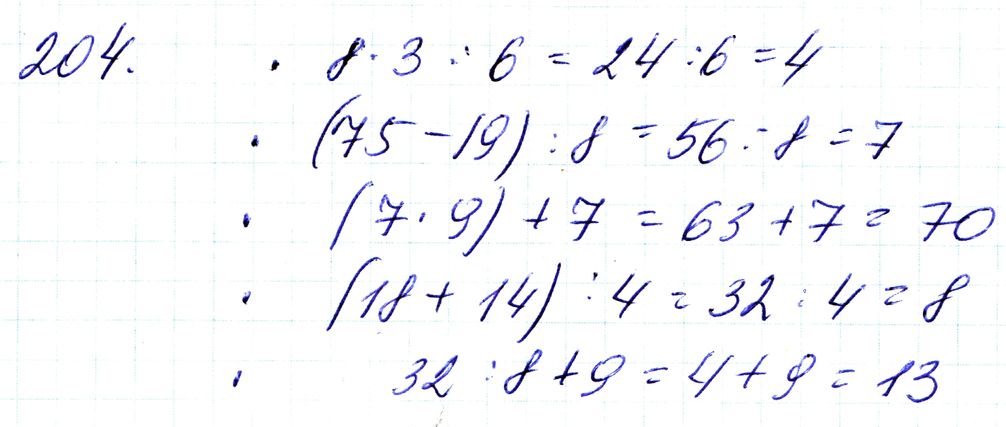 204. · 8·3:6=24:6=4
· (75-19):8=56:8=7
· (7·9)+7=63+7=70
· (18+14):4=32:4=8
· 32:8+9=4+9=13